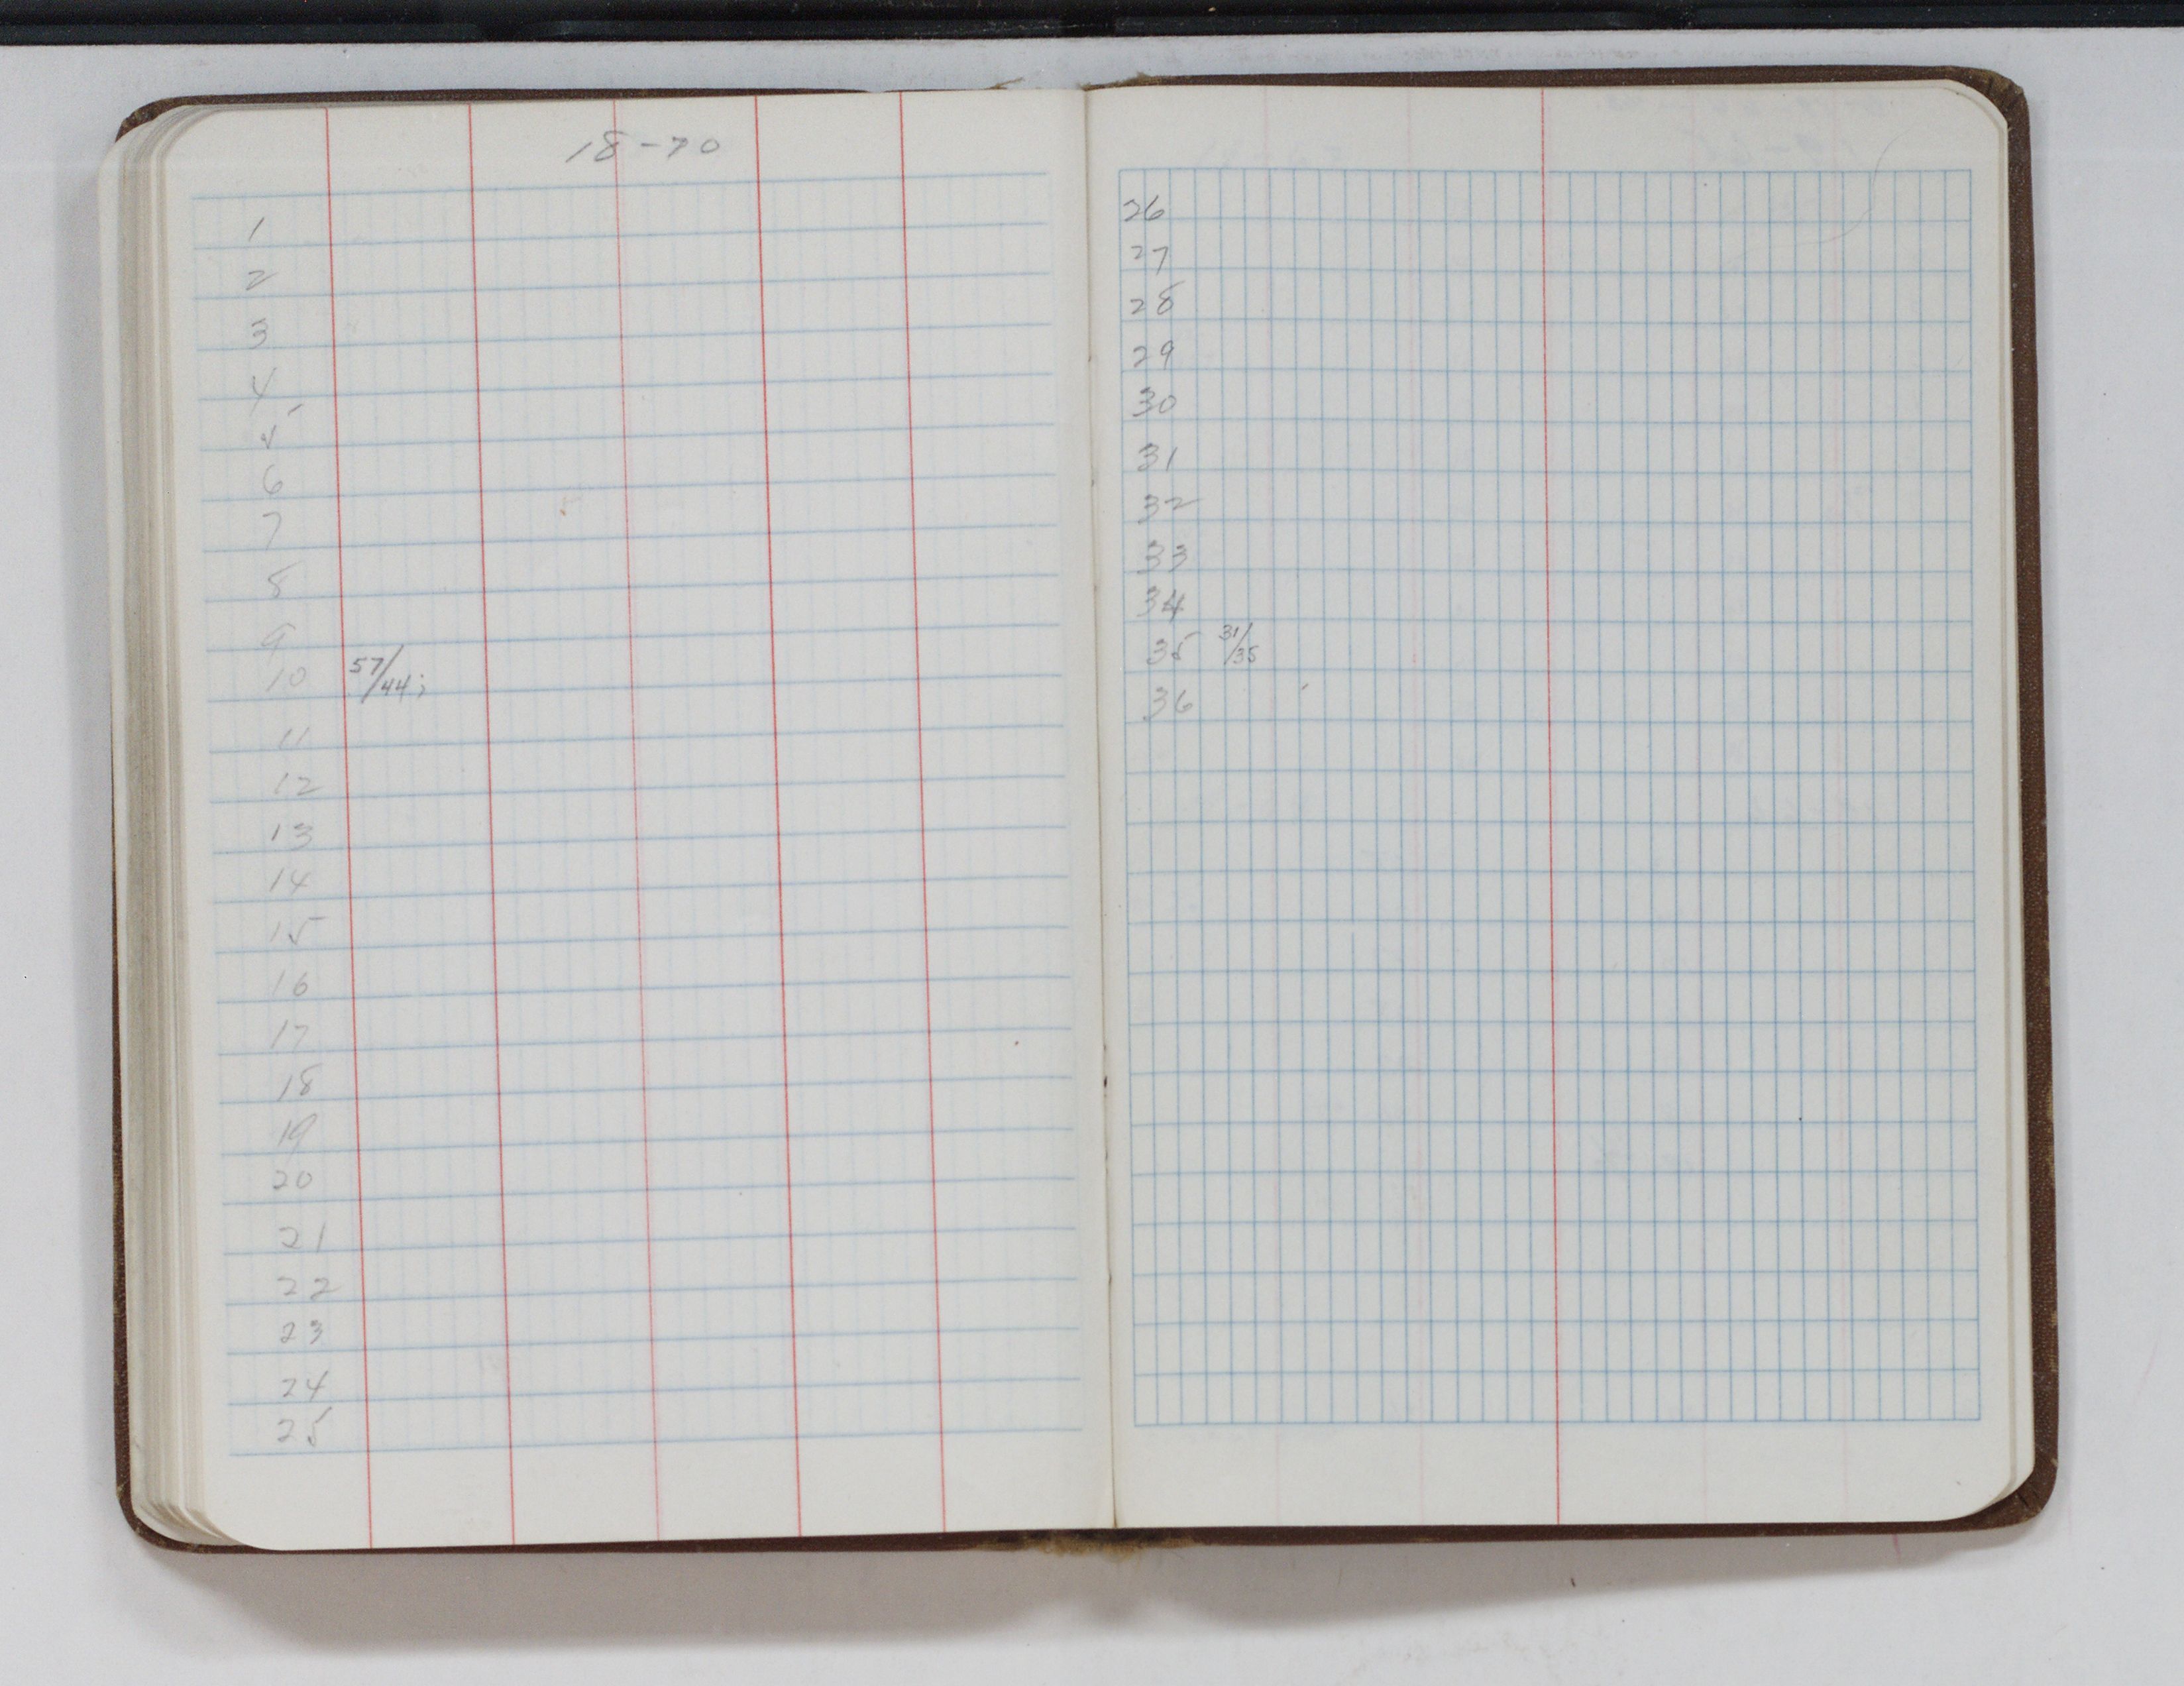 18-70
1
2
3
4
5
6
7
8
9
10 57/44;
11
12
13
14
15
16
17
18
19
20
21
22
23
24
25
26
27
28
29
30
31
32
33
34
35 31/35
36